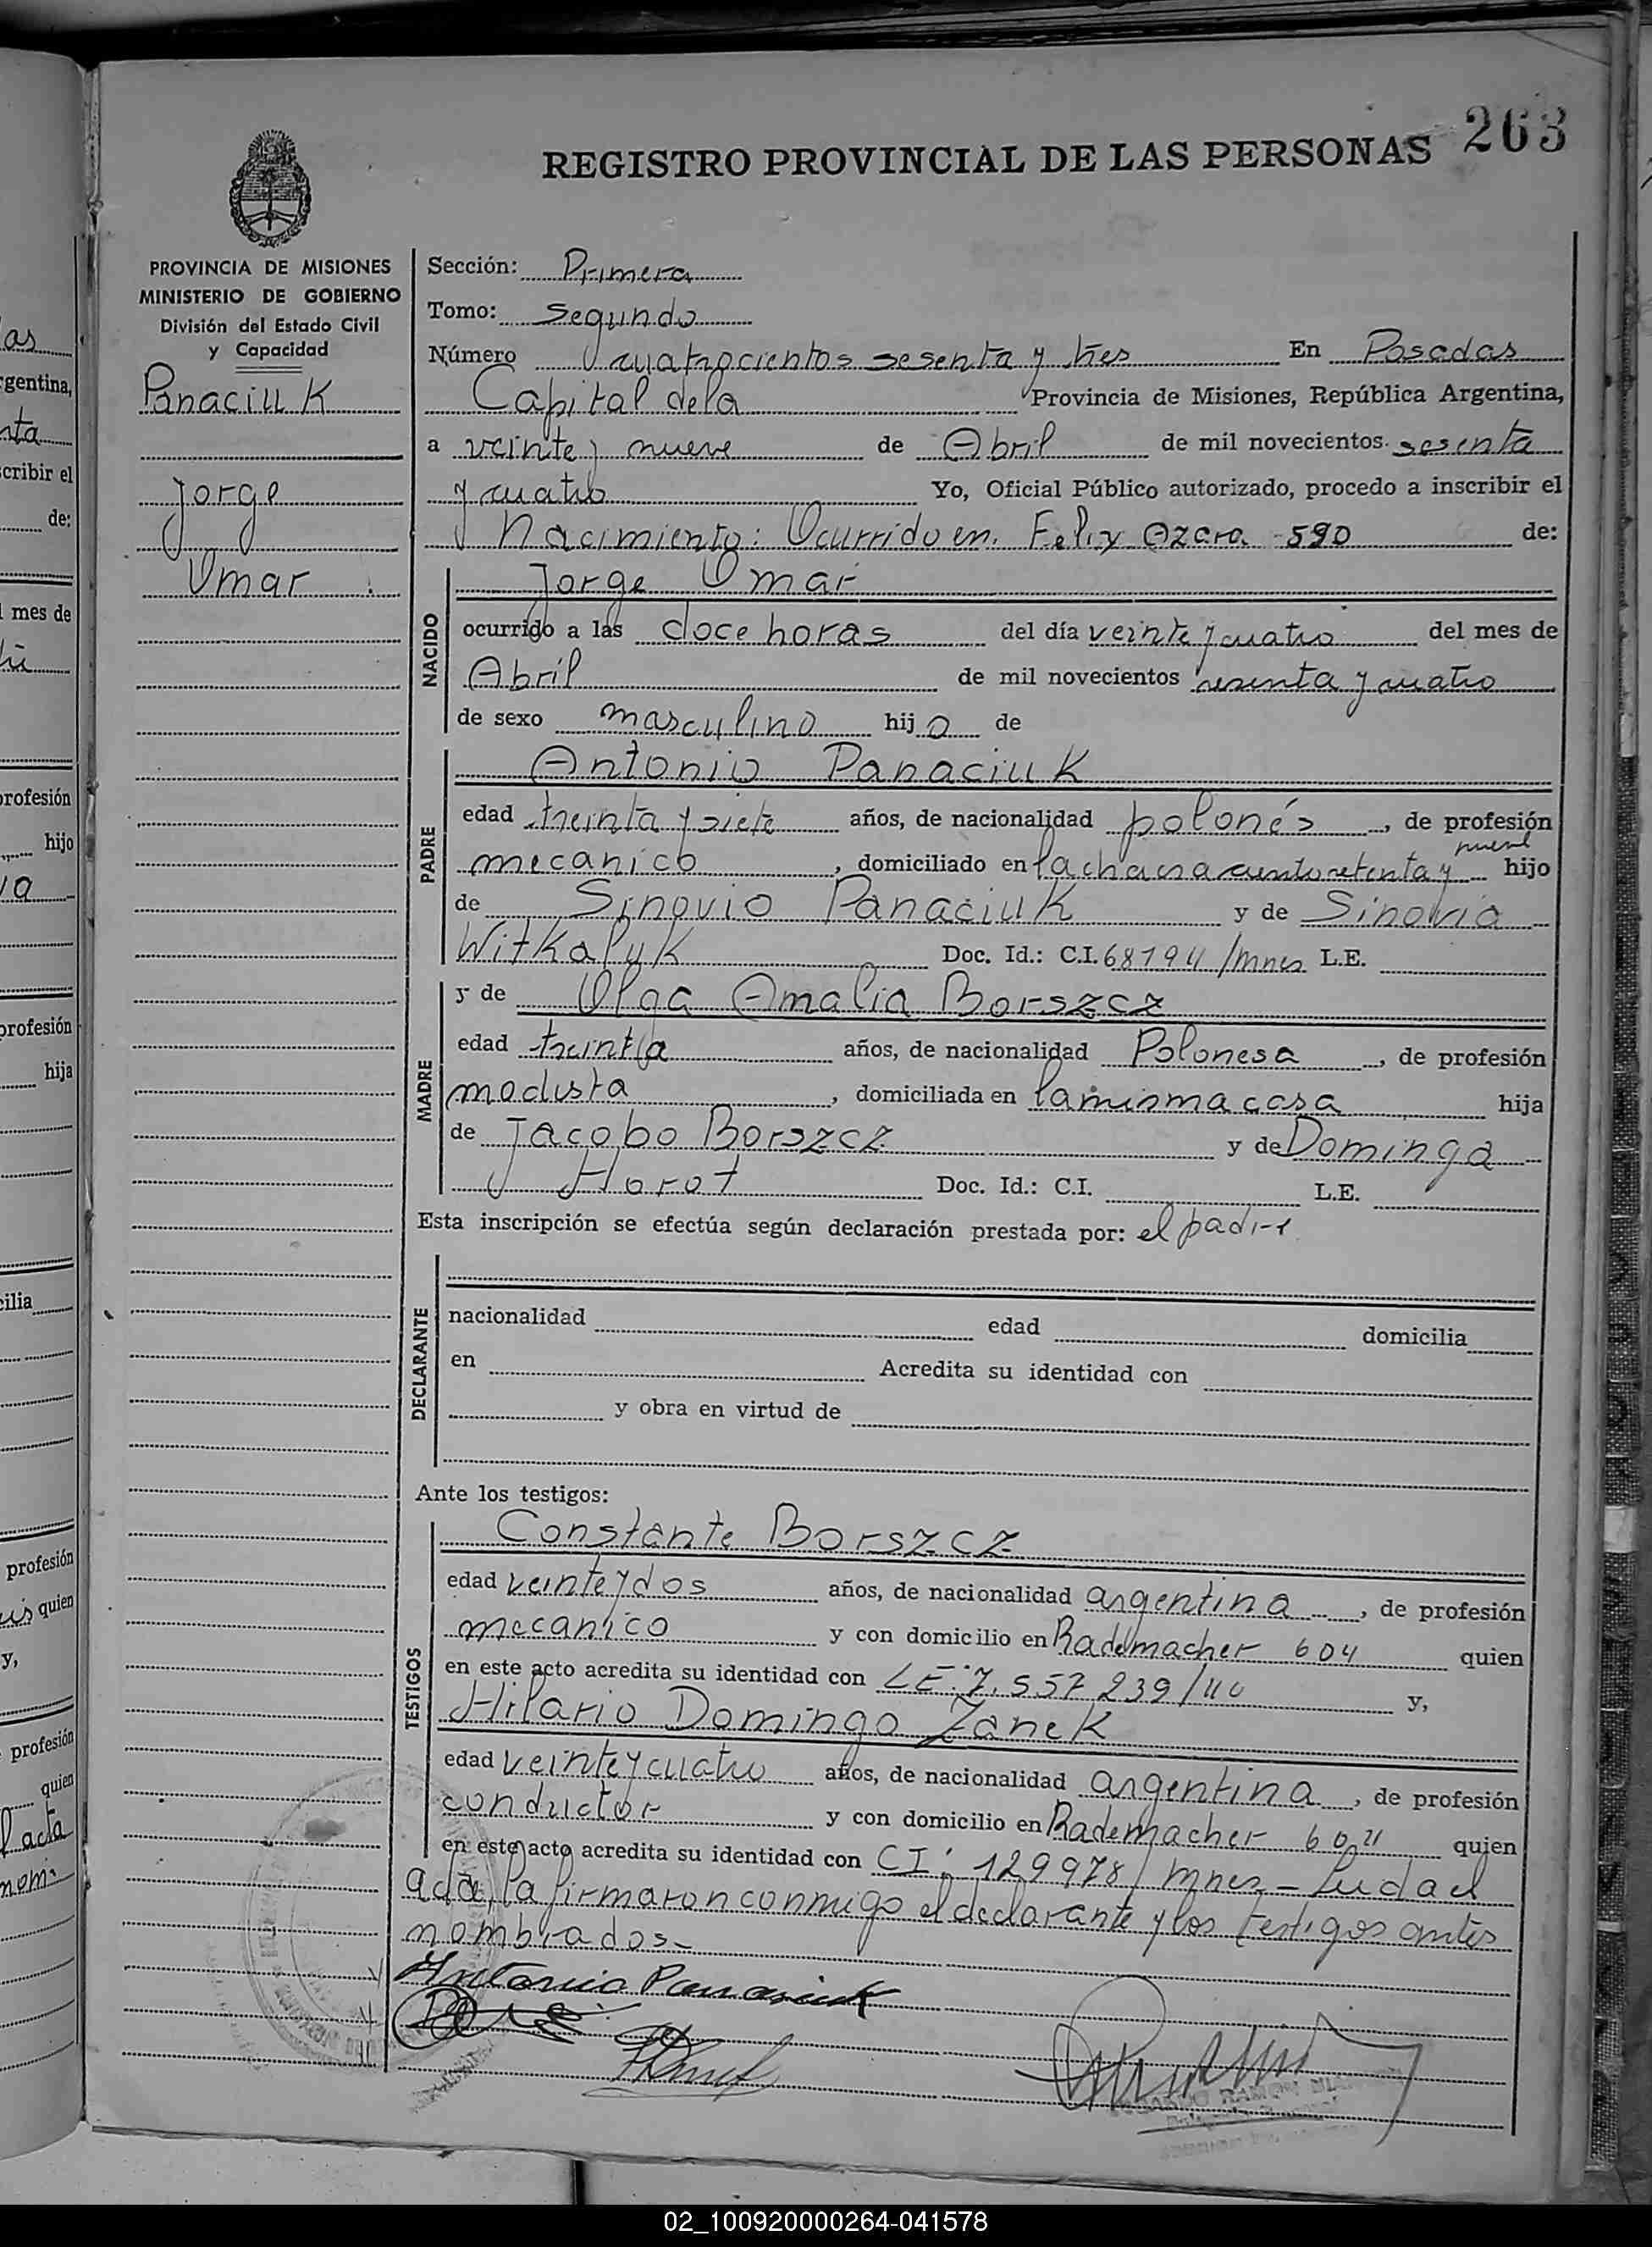 263
REGISTRO PROVINCIAL DE LAS PERSONAS
PROVINCIA DE MISIONES
MINISTERIO DE GOBIERNO
División del Estado Civil
y Capacidad
Panaciuk
Jorge
Omar
Sección: Primera
Tomo: Segundo
Número cuatrocientos sesenta y tres En Posadas
Capital dela Provincia de Misiones, República Argentina,
a veinte y nueve de Abril de mil novecientos sesenta
y cuatro Yo, Oficial Público autorizado, procedo a inscribir el
Nacimiento: Ocurrido en. Felix Azara 590 de:
NACIDO
Jorge Omar
ocurrido a las doce horas del día veinte y cuatro del mes de
Abril de mil novecientos sesenta y cuatro
de sexo masculino hijo de
PADRE
Antonio Panaciuk
edad treinta y siete años, de nacionalidad polonés, de profesión
mecanico, domiciliado en la chacra ciento setenta y nueve hijo
de Sinovio Panaciuk y de Sinovia
Witkaluk Doc. Id.: C.I. 68194/mnes L.E.
MADRE
y de Olga Amalia Borszcz
edad treinta años, de nacionalidad Polonesa, de profesión
modista, domiciliada en la misma casa hija
de Jacobo Borszcz y de Dominga
Horot Doc. Id.: C.I. L.E.
Esta inscripción se efectúa según declaración prestada por: el padre
DECLARANTE
nacionalidad edad domicilia
en Acredita su identidad con
y obra en virtud de
Ante los testigos:
TESTIGOS
Constante Borszcz
edad veinte y dos años, de nacionalidad argentina, de profesión
mecanico y con domicilio en Rademacher 604 quien
en este acto acredita su identidad con LE: 7.557.239 y,
Hilario Domingo Zanek
edad veinte y cuatro años, de nacionalidad argentina, de profesión
conductor y con domicilio en Rademacher quien
en este acto acredita su identidad con CI: 129978/mnes - Leida el
acta, la firmaron conmigo el declarante y los testigos antes
nombrados.-
Antonio Panasiuk
as
rgentina,
nta
cribir el
de:
mes de
profesión
hijo
profesión
hija
cilia
profesión
quien
y,
profesión
quien
acta
02_100920000264-041578